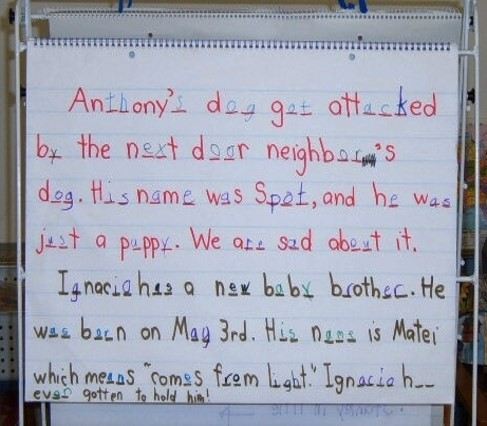 Anthony's dog got attacked
by the next door neighbor's
dog. His name was Spot, and he was
just a puppy. We are sad about it.
Ignacia has a new baby brother. He
was born on May 3rd. His name is Matei
which means "comes from light." Ignacia h__
even gotten to hold him!